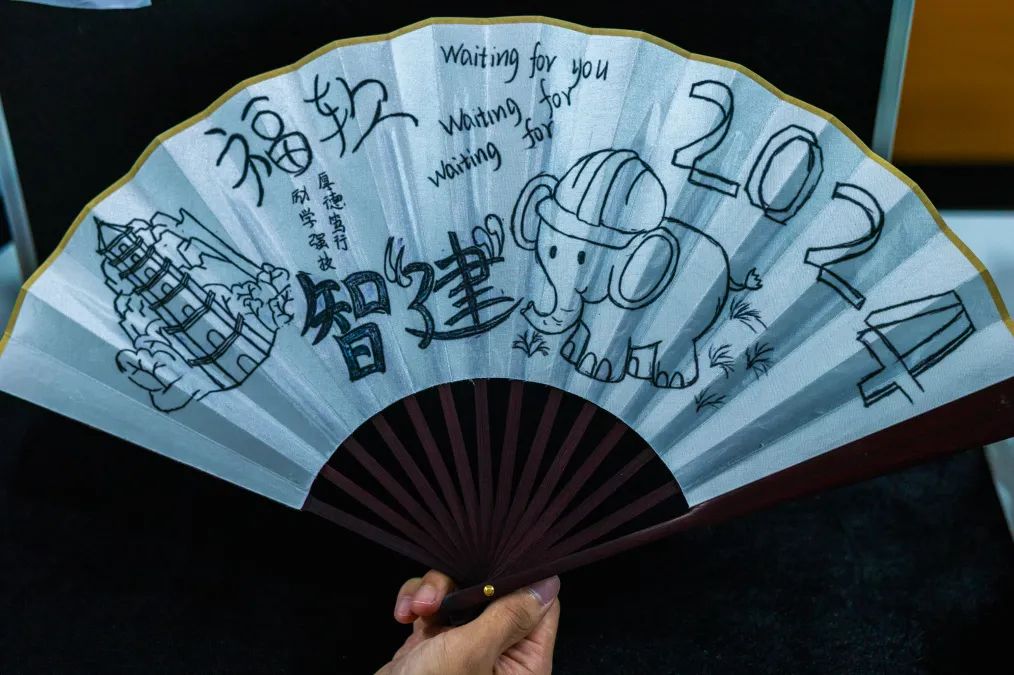 福软
厚德笃行
励学强技
智“建”
waiting for you
waiting for
waiting for
2024